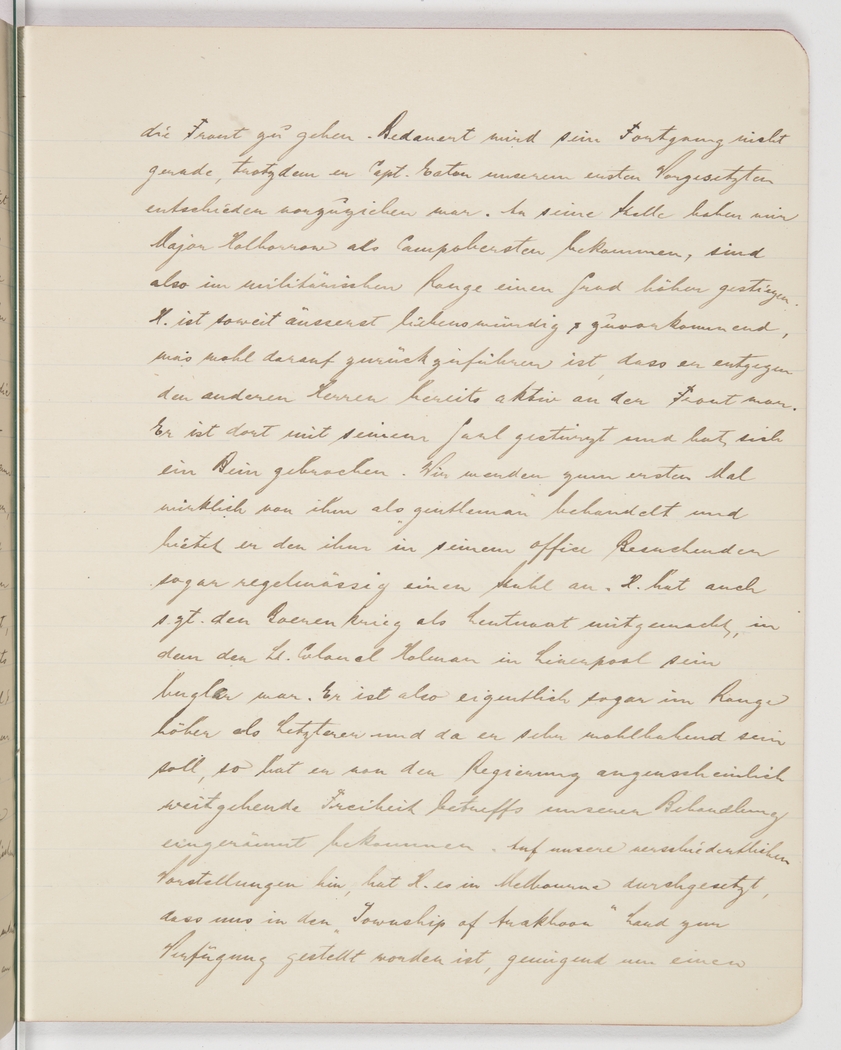 die Front zu gehen. Bedauert wird sein Fortgang nicht
gerade, trotzdem er Capt. Eaton unserem ersten Vorgesetzten
entschieden vorzuziehen war. An seine Stelle haben wir
Major Holborrow als Campobersten bekommen, sind
also im militärischen Range einen Grad höher gestiegen.
H. ist soweit äusserst liebenswürdig & zuvorkommend,
was wohl darauf zurückzuführen ist, dass er entgegen
den anderen Herren bereits aktiv an der Front war.
Er ist dort mit seinem Gaul gestürzt und hat sich
ein Bein gebrochen. Wir werden zum ersten Mal
wirklich von ihm als "gentleman" behandelt und
bietet er den ihm in seinem office Besuchenden
sogar regelmässig einen Stuhl an. H. hat auch
s.Zt. den Boerenkrieg als Leutnant mitgemacht, in
dem der Lt. Colonel Holman in Liverpool sein
bugler war. Er ist also eigentlich sogar im Range
höher als Letzterer und da er sehr wohlhabend sein
soll, so hat er von der Regierung augenscheinlich
weitgehende Freiheit betreffs unserer Behandlung
eingeräumt bekommen. Auf unsere verschiedentlichen
Vorstellungen hin, hat H. es in Melbourne durchgesetzt,
dass uns in der "Township of Arakhoon" Land zur
Verfügung gestellt worden ist, genügend um einen